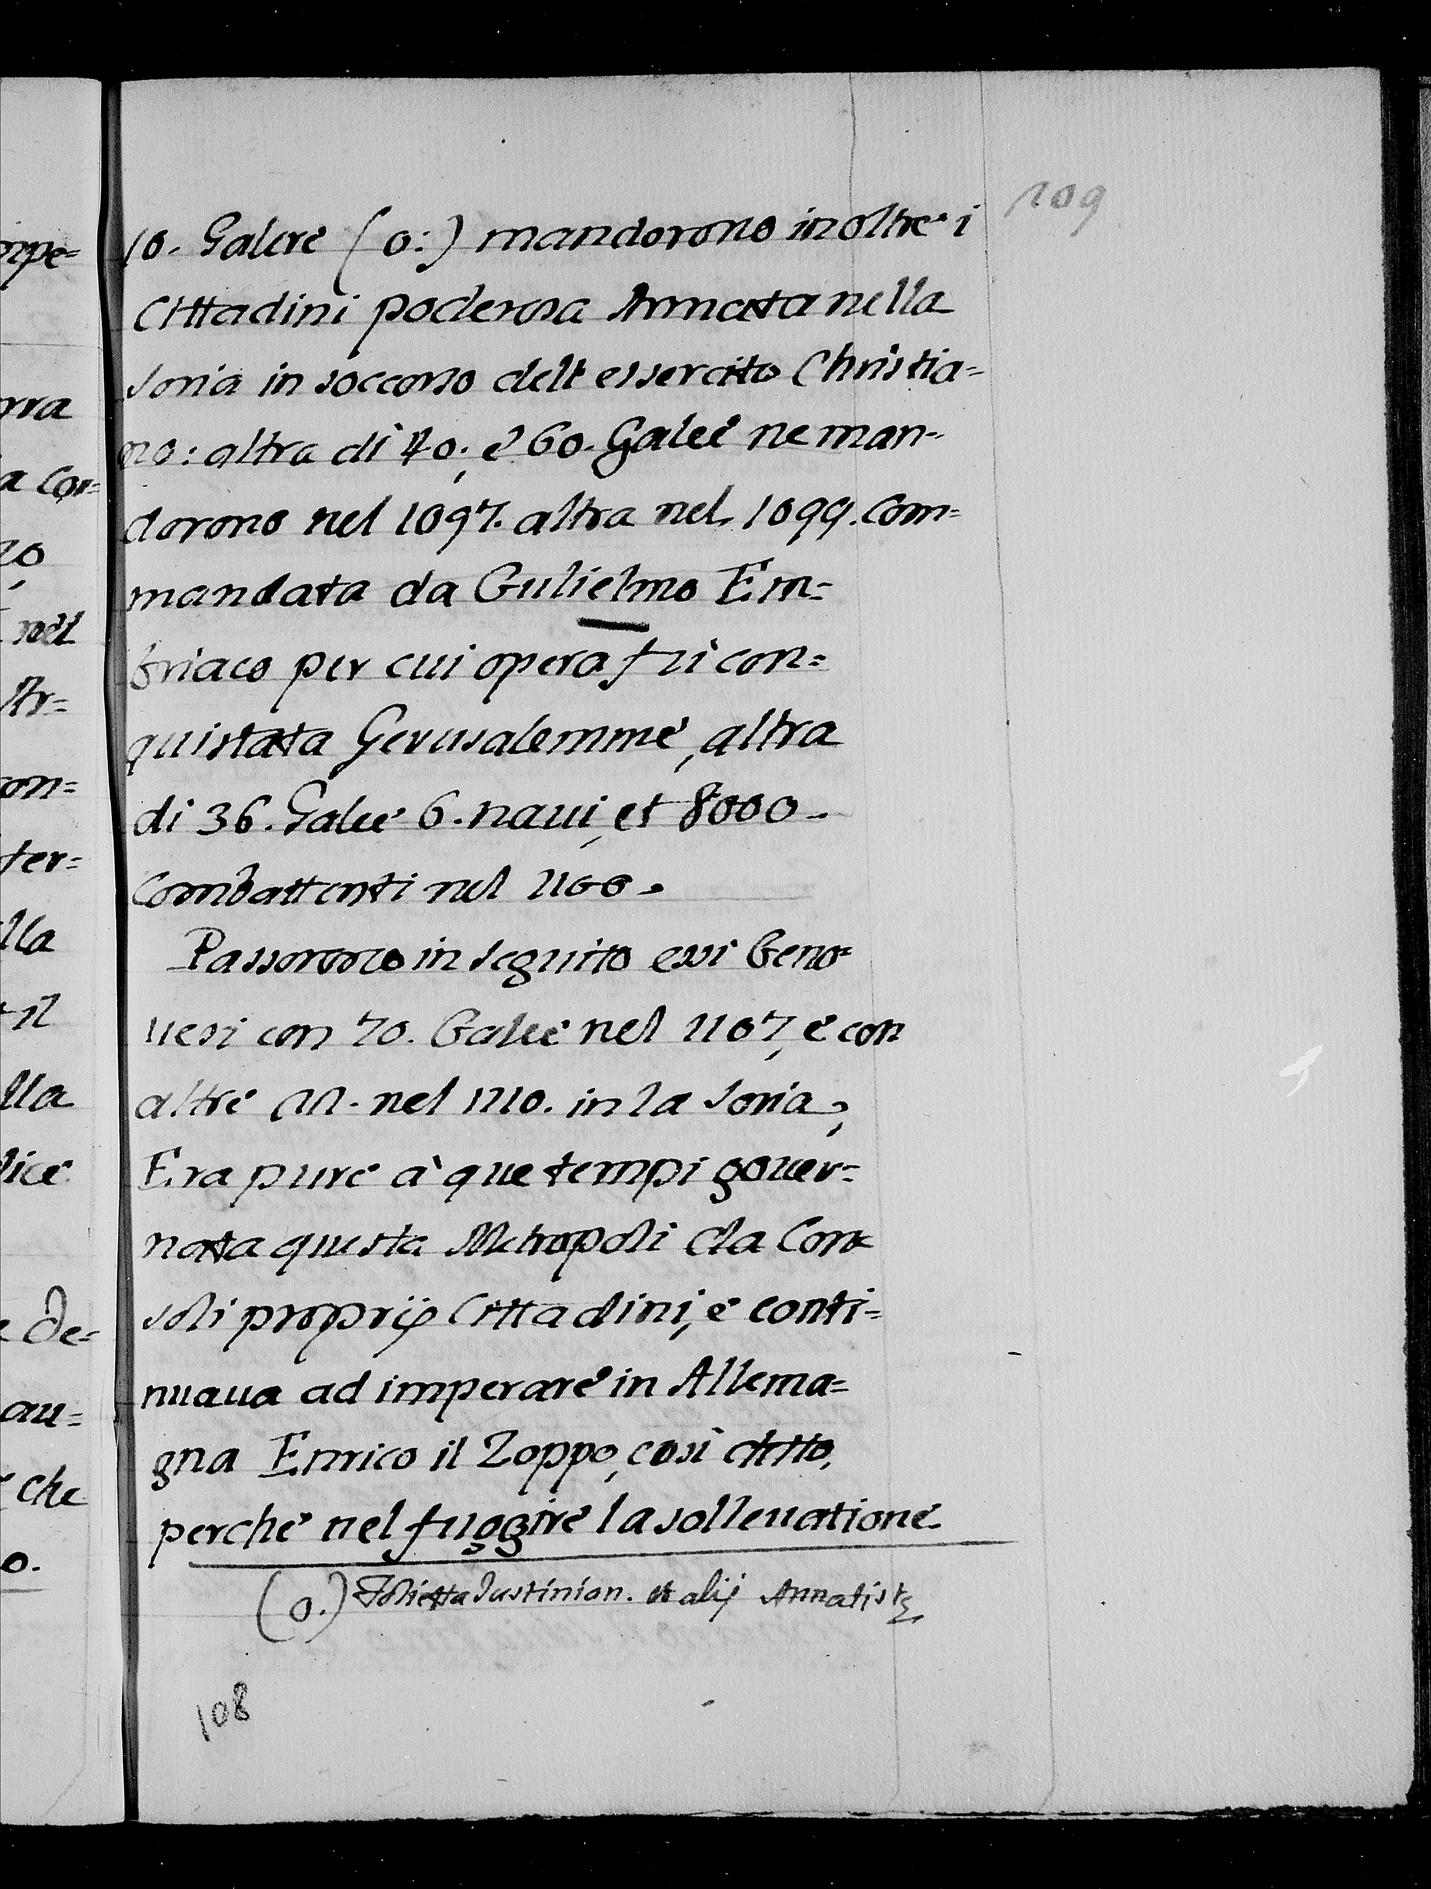 109
10. Galere (o:) mandorono inoltre i
Cittadini poderosa Armata nella
Soria in soccorso dell essercito Christia=
no: altra di 40; e 60. Galee ne man=
dorono nel 1097. altra nel 1099. com=
mandata da Gulielmo Em=
briaco per cui opera fu con=
quistata Gerusalemme, altra
di 36. Galee 6. naui, et 8000.
Combattenti nel 1100.
Passorono in seguito essi Geno=
uesi con 70. Galee nel 1107, e con
altre 22. nel 1110. in la Soria,
Era pure à que tempi gouer=
nata questa Metropoli da Con=
soli proprij Cittadini, e conti=
nuaua ad imperare in Allema=
gna Enrico il Zoppo, così detto,
perche nel fuggire la solleuatione
(o.) Folietta Iustinian. et alij Annalistę
108